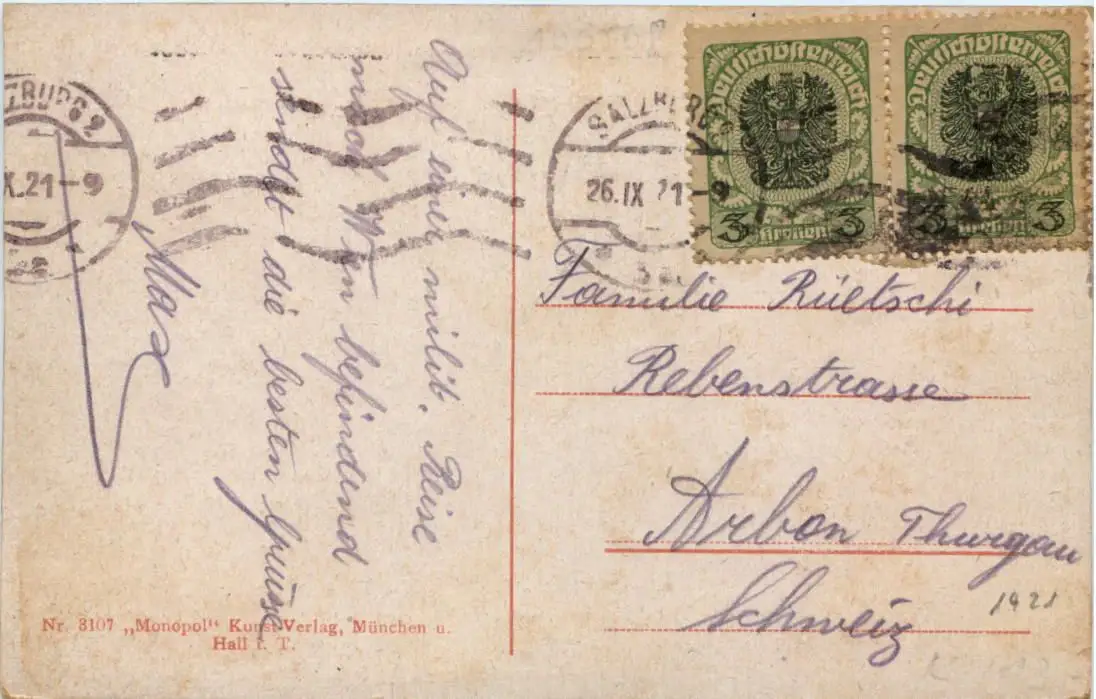 Auf einer milit. Reise
nach Wien befindend
sendet die besten Grüsse
Max
Familie Rüetschi
Rebenstrasse
Arbon Thurgau
Schweiz
1921
Deutschösterreich
3 Kronen 3
Deutschösterreich
3 Kronen 3
SALZBURG 2
26.IX 21-9
SALZBURG 2
IX.21-9
Nr. 3107 „Monopol“ Kunst-Verlag, München u.
Hall i. T.